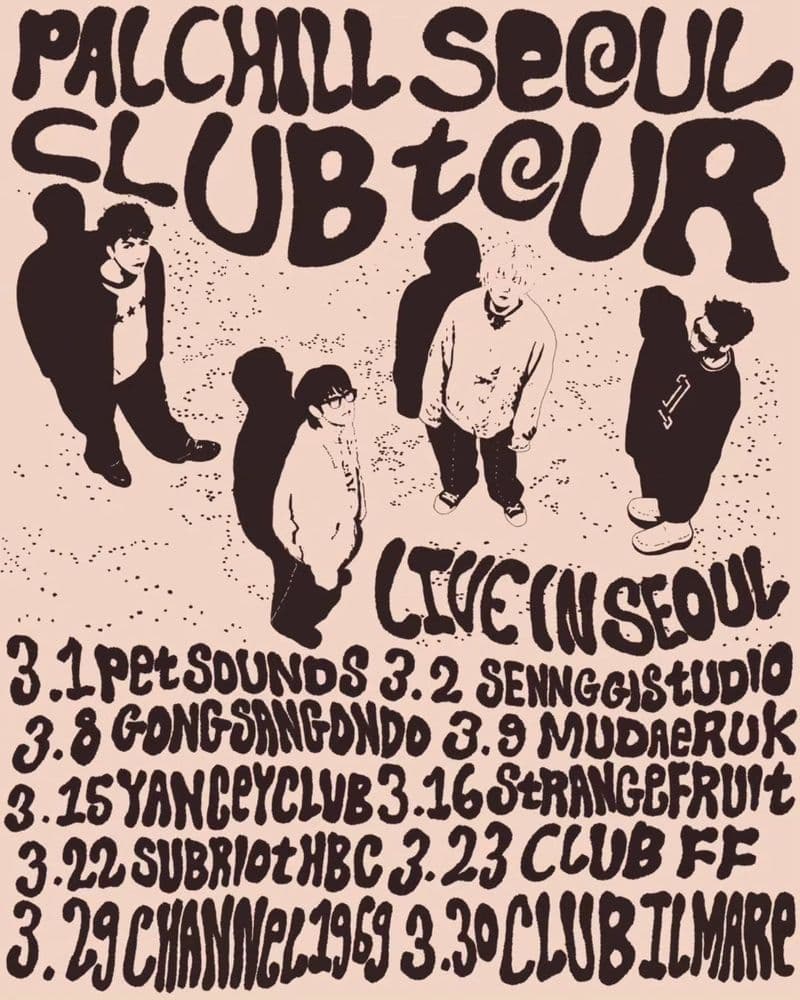 PALCHILL SEOUL
CLUB tOUR
LIVE IN SEOUL
3.1 Pet SOUNDS 3.2 SENNGGISTUDIO
3.8 GONGSANGONDO 3.9 MUDAeRUK
3.15 YANCeYCLUB 3.16 StRANGeFRUIt
3.22 SUBRIOtHBC 3.23 CLUB FF
3.29 CHANNeL1969 3.30 CLUB ILMARe